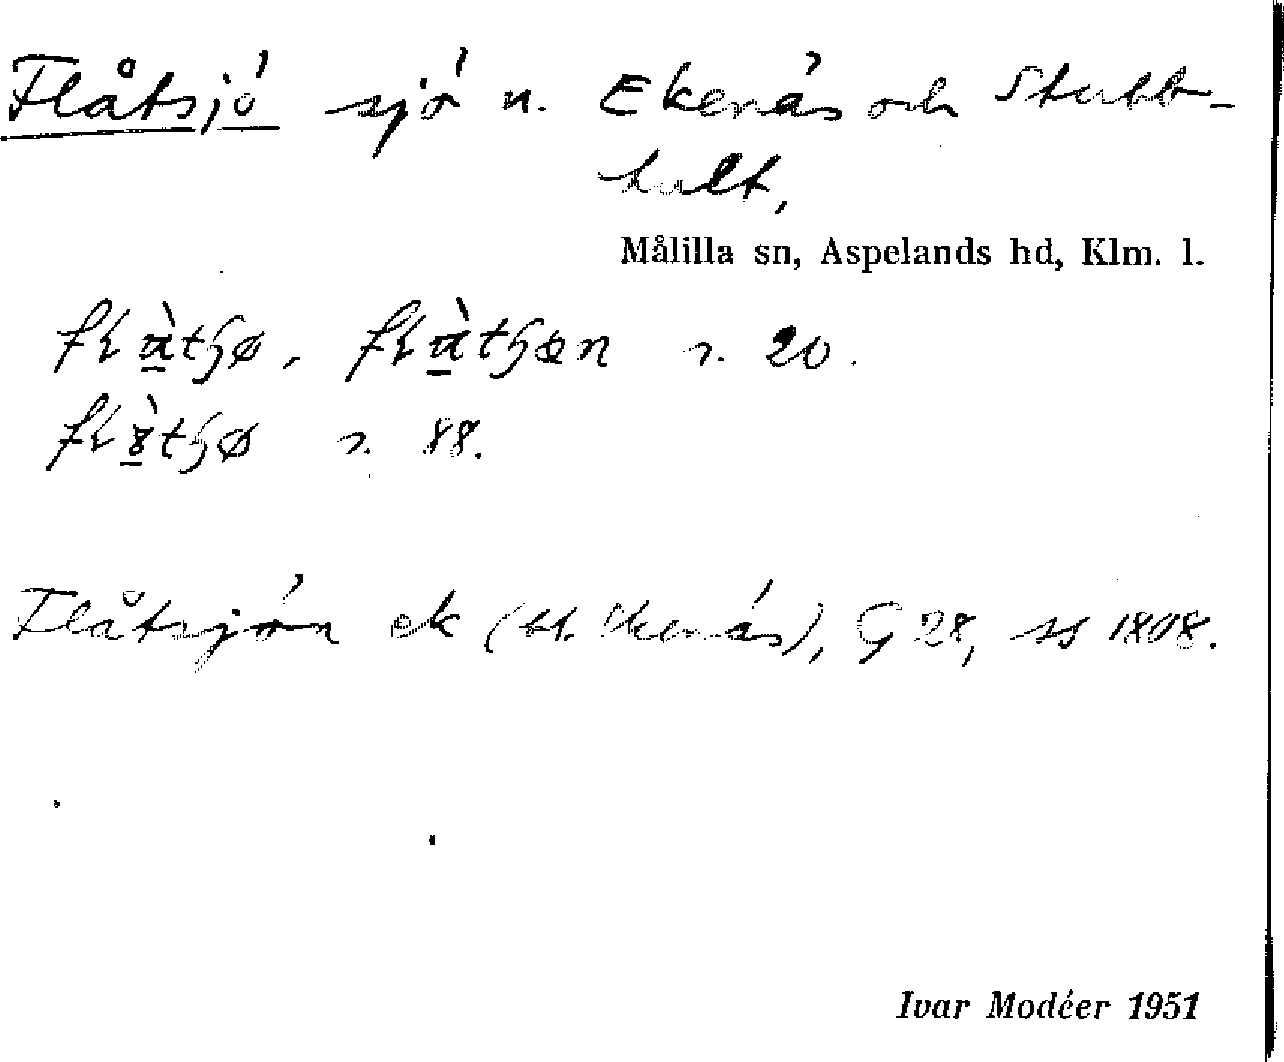 Flåtsjö sjö n. Ekenäs och Stubb-
hult,
Målilla sn, Aspelands hd, Klm. l.
s. 20.
s. 88.
Flåtsjön ek (t. Ekenäs), G 28, ss 1808.
Ivar Modéer 1951